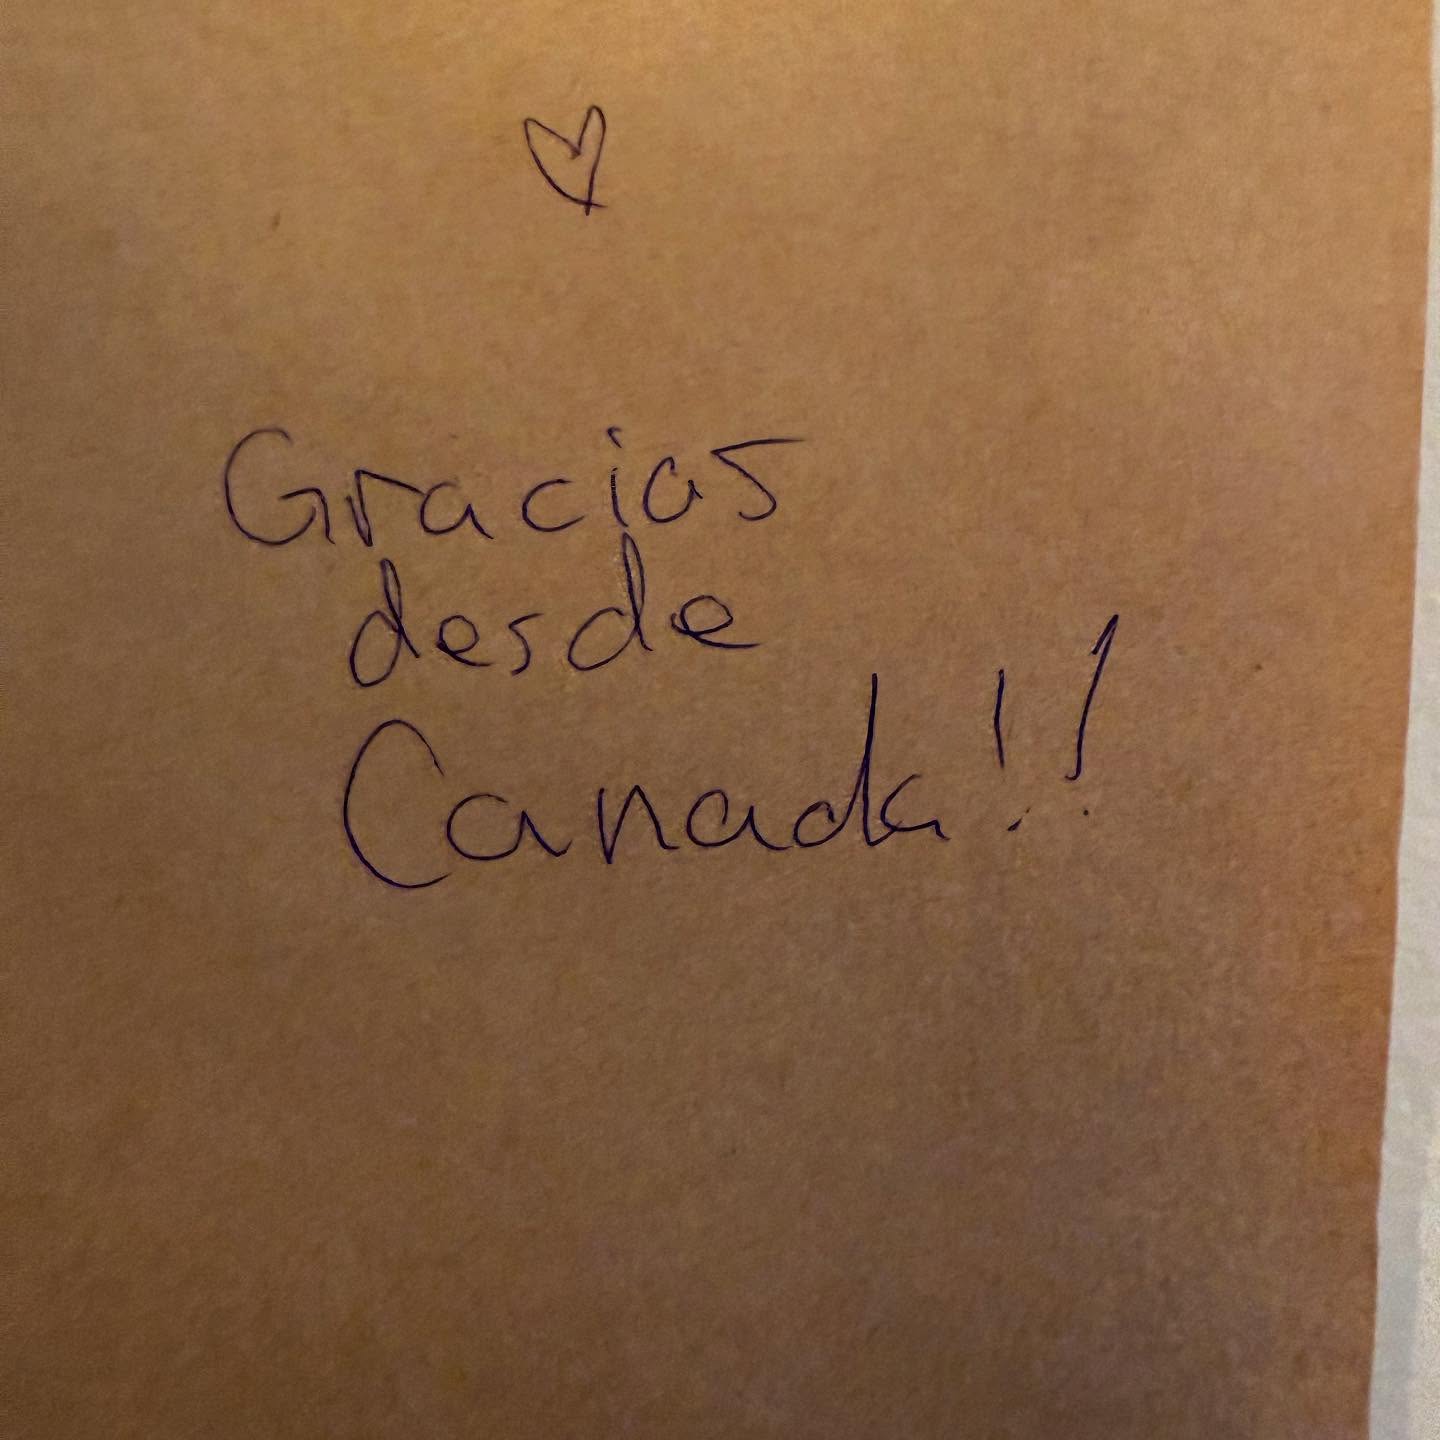 Gracias
desde
Canada!!